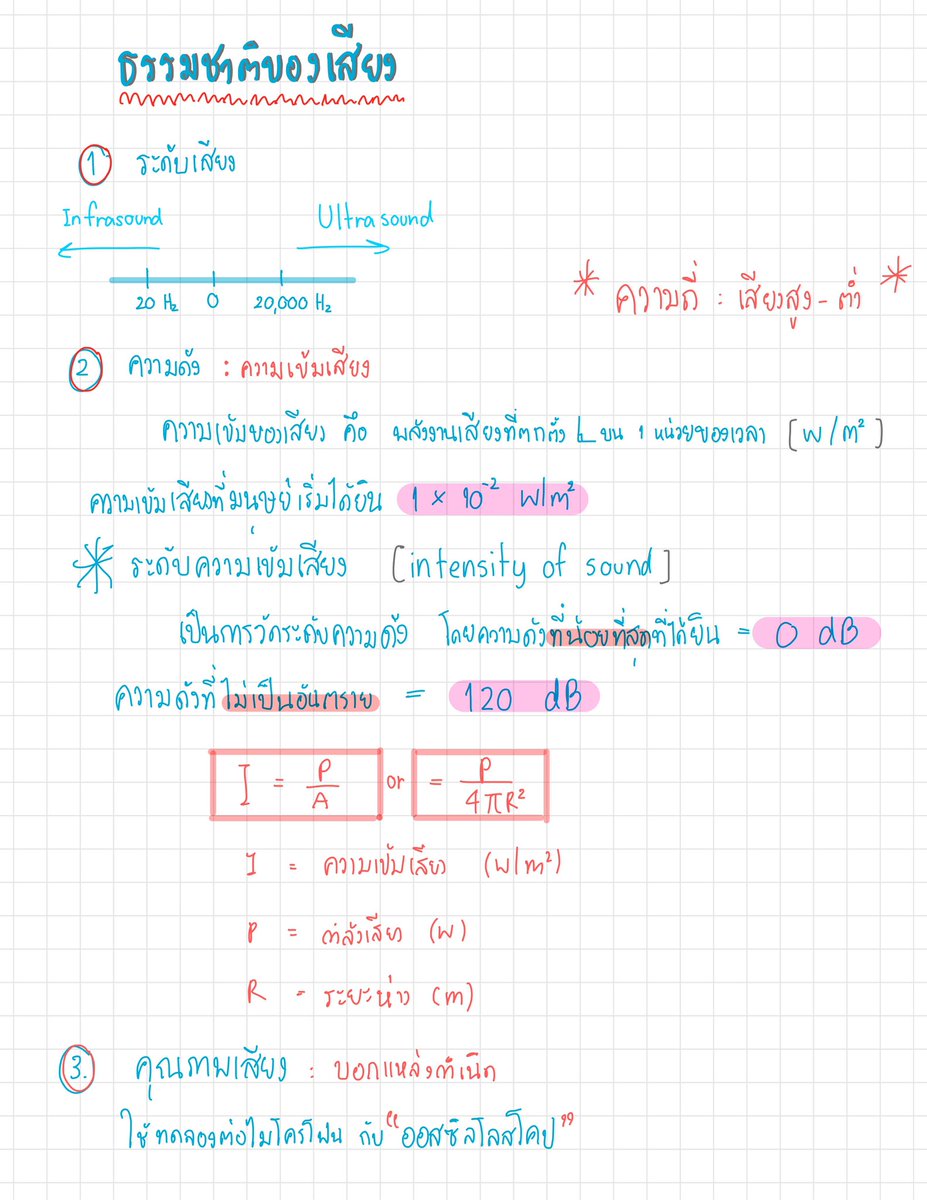 ธรรมชาติของเสียง
1 ระดับเสียง
Infrasound Ultrasound
20 Hz 0 20,000 Hz
* ความถี่ : เสียงสูง - ต่ำ *
2 ความดัง : ความเข้มเสียง
ความเข้มของเสียง คือ พลังงานเสียงที่ตกตั้ง บน 1 หน่วยของเวลา [W/m²]
ความเข้มเสียงที่มนุษย์เริ่มได้ยิน 1 × 10⁻² W/m²
* ระดับความเข้มเสียง [intensity of sound]
เป็นการวัดระดับความดัง โดยความดังที่น้อยที่สุดที่ได้ยิน = 0 dB
ความดังที่ไม่เป็นอันตราย = 120 dB
I = P/A or = P/4πR²
I = ความเข้มเสียง (W/m²)
P = กำลังเสียง (W)
R = ระยะห่าง (m)
3. คุณภาพเสียง : บอกแหล่งกำเนิด
ใช้ทดลองต่อไมโครโฟน กับ "ออสซิลโลสโคป"